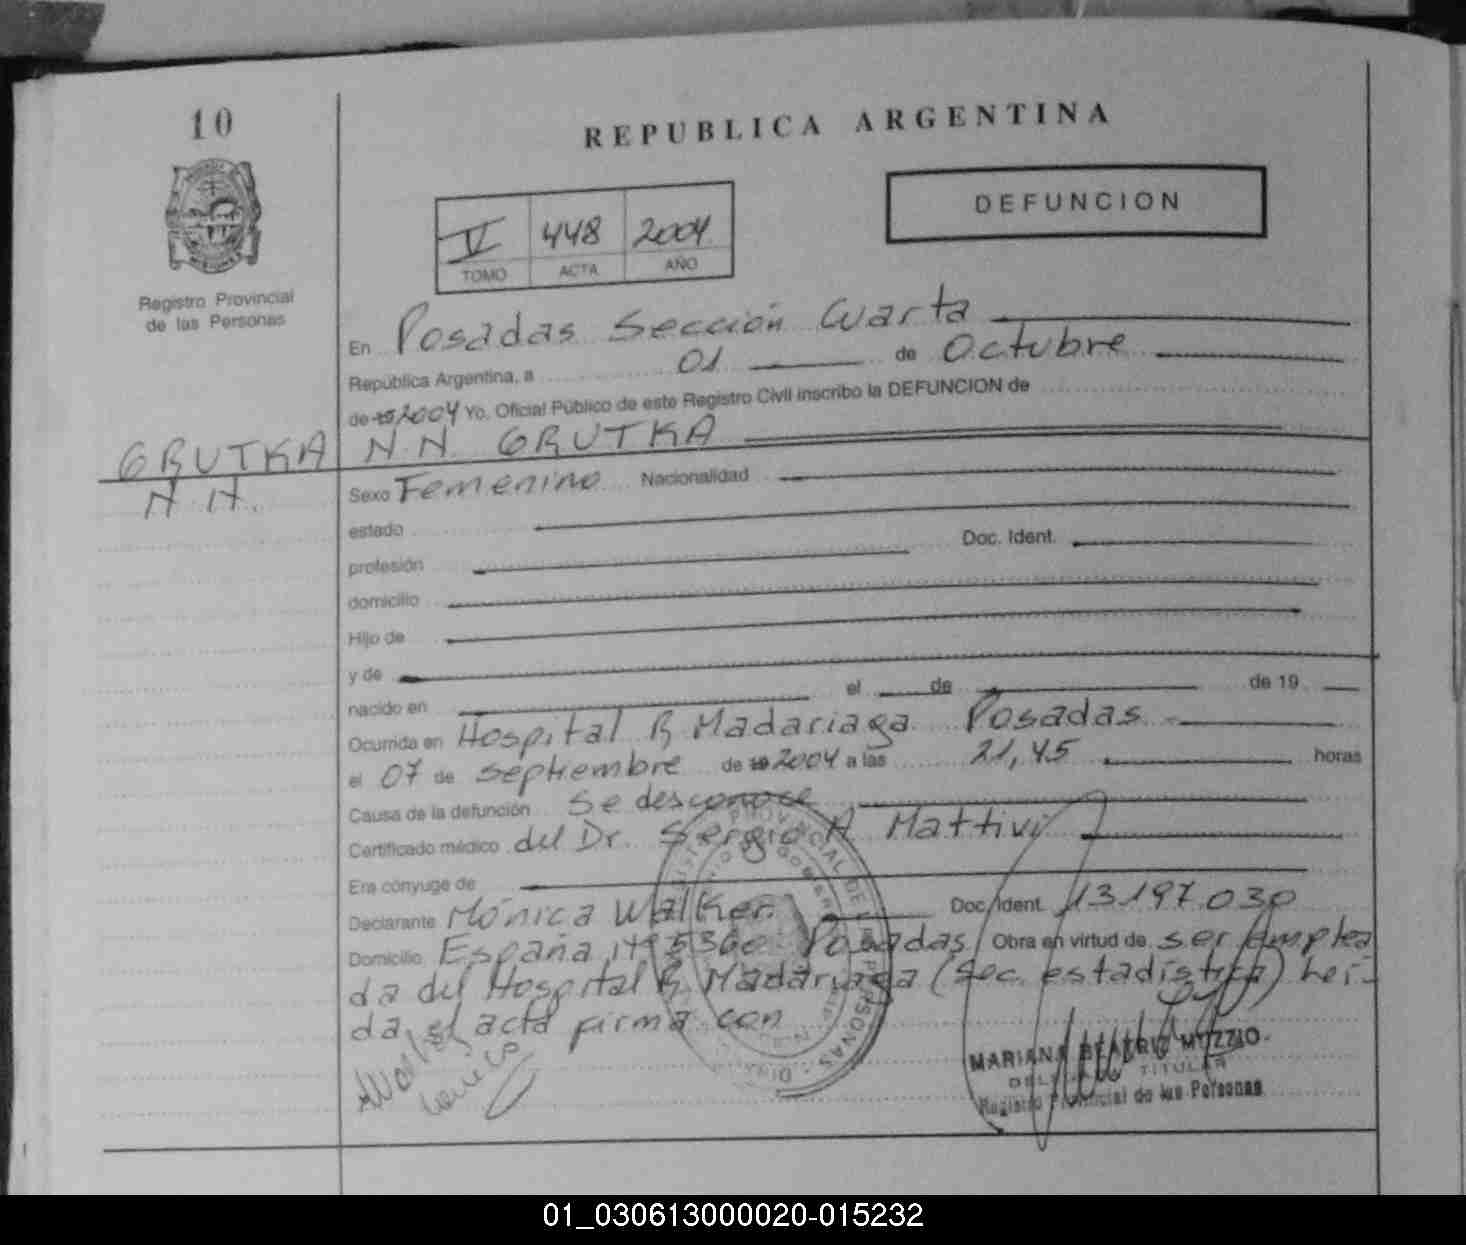 10
REPUBLICA ARGENTINA
DEFUNCION
V 448 2004
TOMO ACTA AÑO
Registro Provincial
de las Personas
En Posadas Sección Cuarta
República Argentina, a 01 de Octubre
de 19 2004 Yo, Oficial Público de este Registro Civil inscribo la DEFUNCION de
GRUTKA N.N. GRUTKA
N.N.
Sexo Femenino Nacionalidad
estado
profesión Doc. Ident.
domicilio
Hijo de
y de
nacido en el de de 19
Ocurrida en Hospital R Madariaga Posadas
el 07 de septiembre de 19 2004 a las 21,45 horas
Causa de la defunción Se desconoce
Certificado médico del Dr. Sergio A Mattivi
Era cónyuge de
Declarante Mónica Walker Doc. Ident. 13197.030
Domicilio España Nº 5360 Posadas Obra en virtud de ser emplea
da del Hospital R Madariaga (Sec. estadística) leí-
da el acta firma con
MARIANA BEATRIZ MUZZIO
TITULAR
Registro Provincial de las Personas
01_030613000020-015232